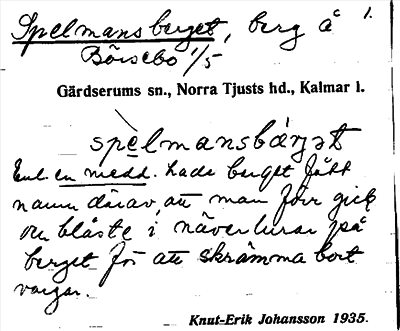 Spelmansberget, berg å 1.
Börsebo 1/5
Gärdserums sn., Norra Tjusts hd., Kalmar l.
spelmansbärjət
Enl. en medd. hade berget fått
namn därav, att man förr gick
och blåste i näverlurar på
berget för att skrämma bort
vargar.
Knut-Erik Johansson 1935.